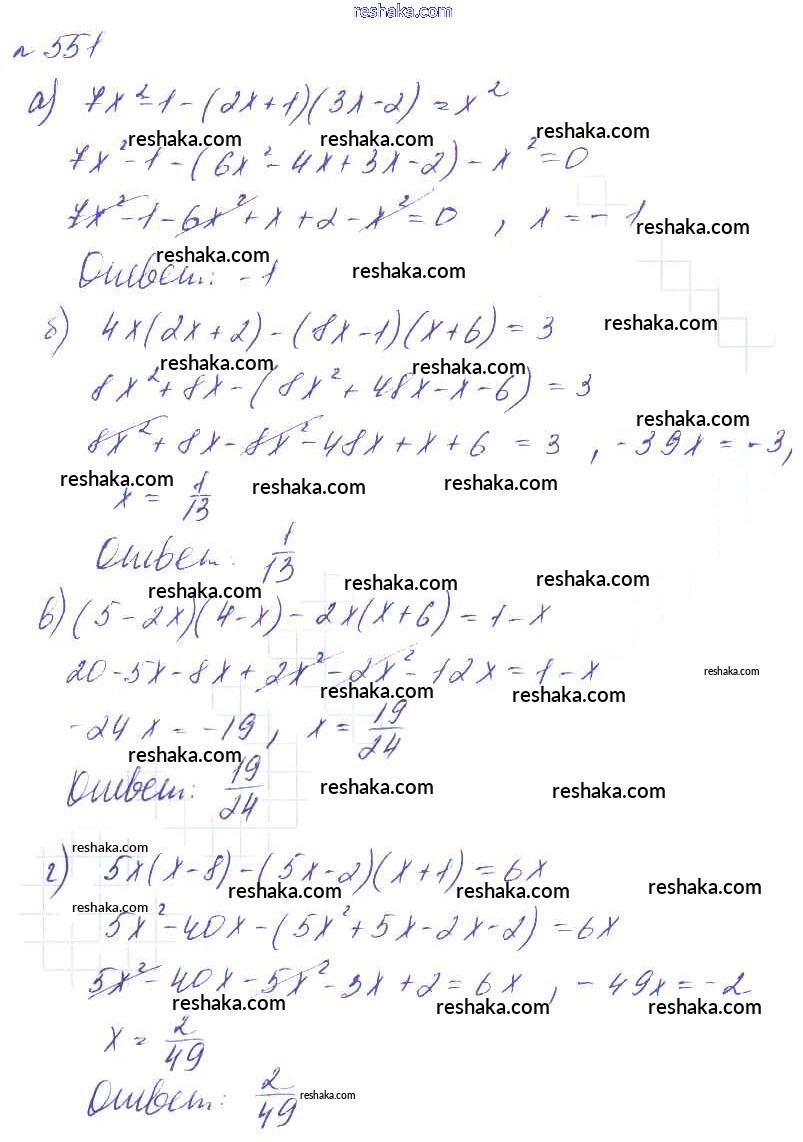 reshaka.com
№ 551
а) 7x²-1-(2x+1)(3x-2)=x²
reshaka.com reshaka.com reshaka.com
7x²-1-(6x²-4x+3x-2)-x²=0
7x²-1-6x²+x+2-x²=0, x=-1
reshaka.com
reshaka.com reshaka.com
Ответ: -1
б) 4x(2x+2)-(8x-1)(x+6)=3
reshaka.com
reshaka.com reshaka.com
8x²+8x-(8x²+48x-x-6)=3
reshaka.com
8x²+8x-8x²-48x+x+6=3, -39x=-3,
reshaka.com reshaka.com reshaka.com
x=1/13
Ответ: 1/13
reshaka.com reshaka.com reshaka.com
в) (5-2x)(4-x)-2x(x+6)=1-x
20-5x-8x+2x²-2x²-12x=1-x
reshaka.com
reshaka.com reshaka.com
-24x=-19, x=19/24
reshaka.com
Ответ: 19/24
reshaka.com reshaka.com
reshaka.com
г) 5x(x-8)-(5x-2)(x+1)=6x
reshaka.com reshaka.com reshaka.com
reshaka.com
5x²-40x-(5x²+5x-2x-2)=6x
5x²-40x-5x²-3x+2=6x, -49x=-2
reshaka.com reshaka.com reshaka.com
x=2/49
Ответ: 2/49
reshaka.com